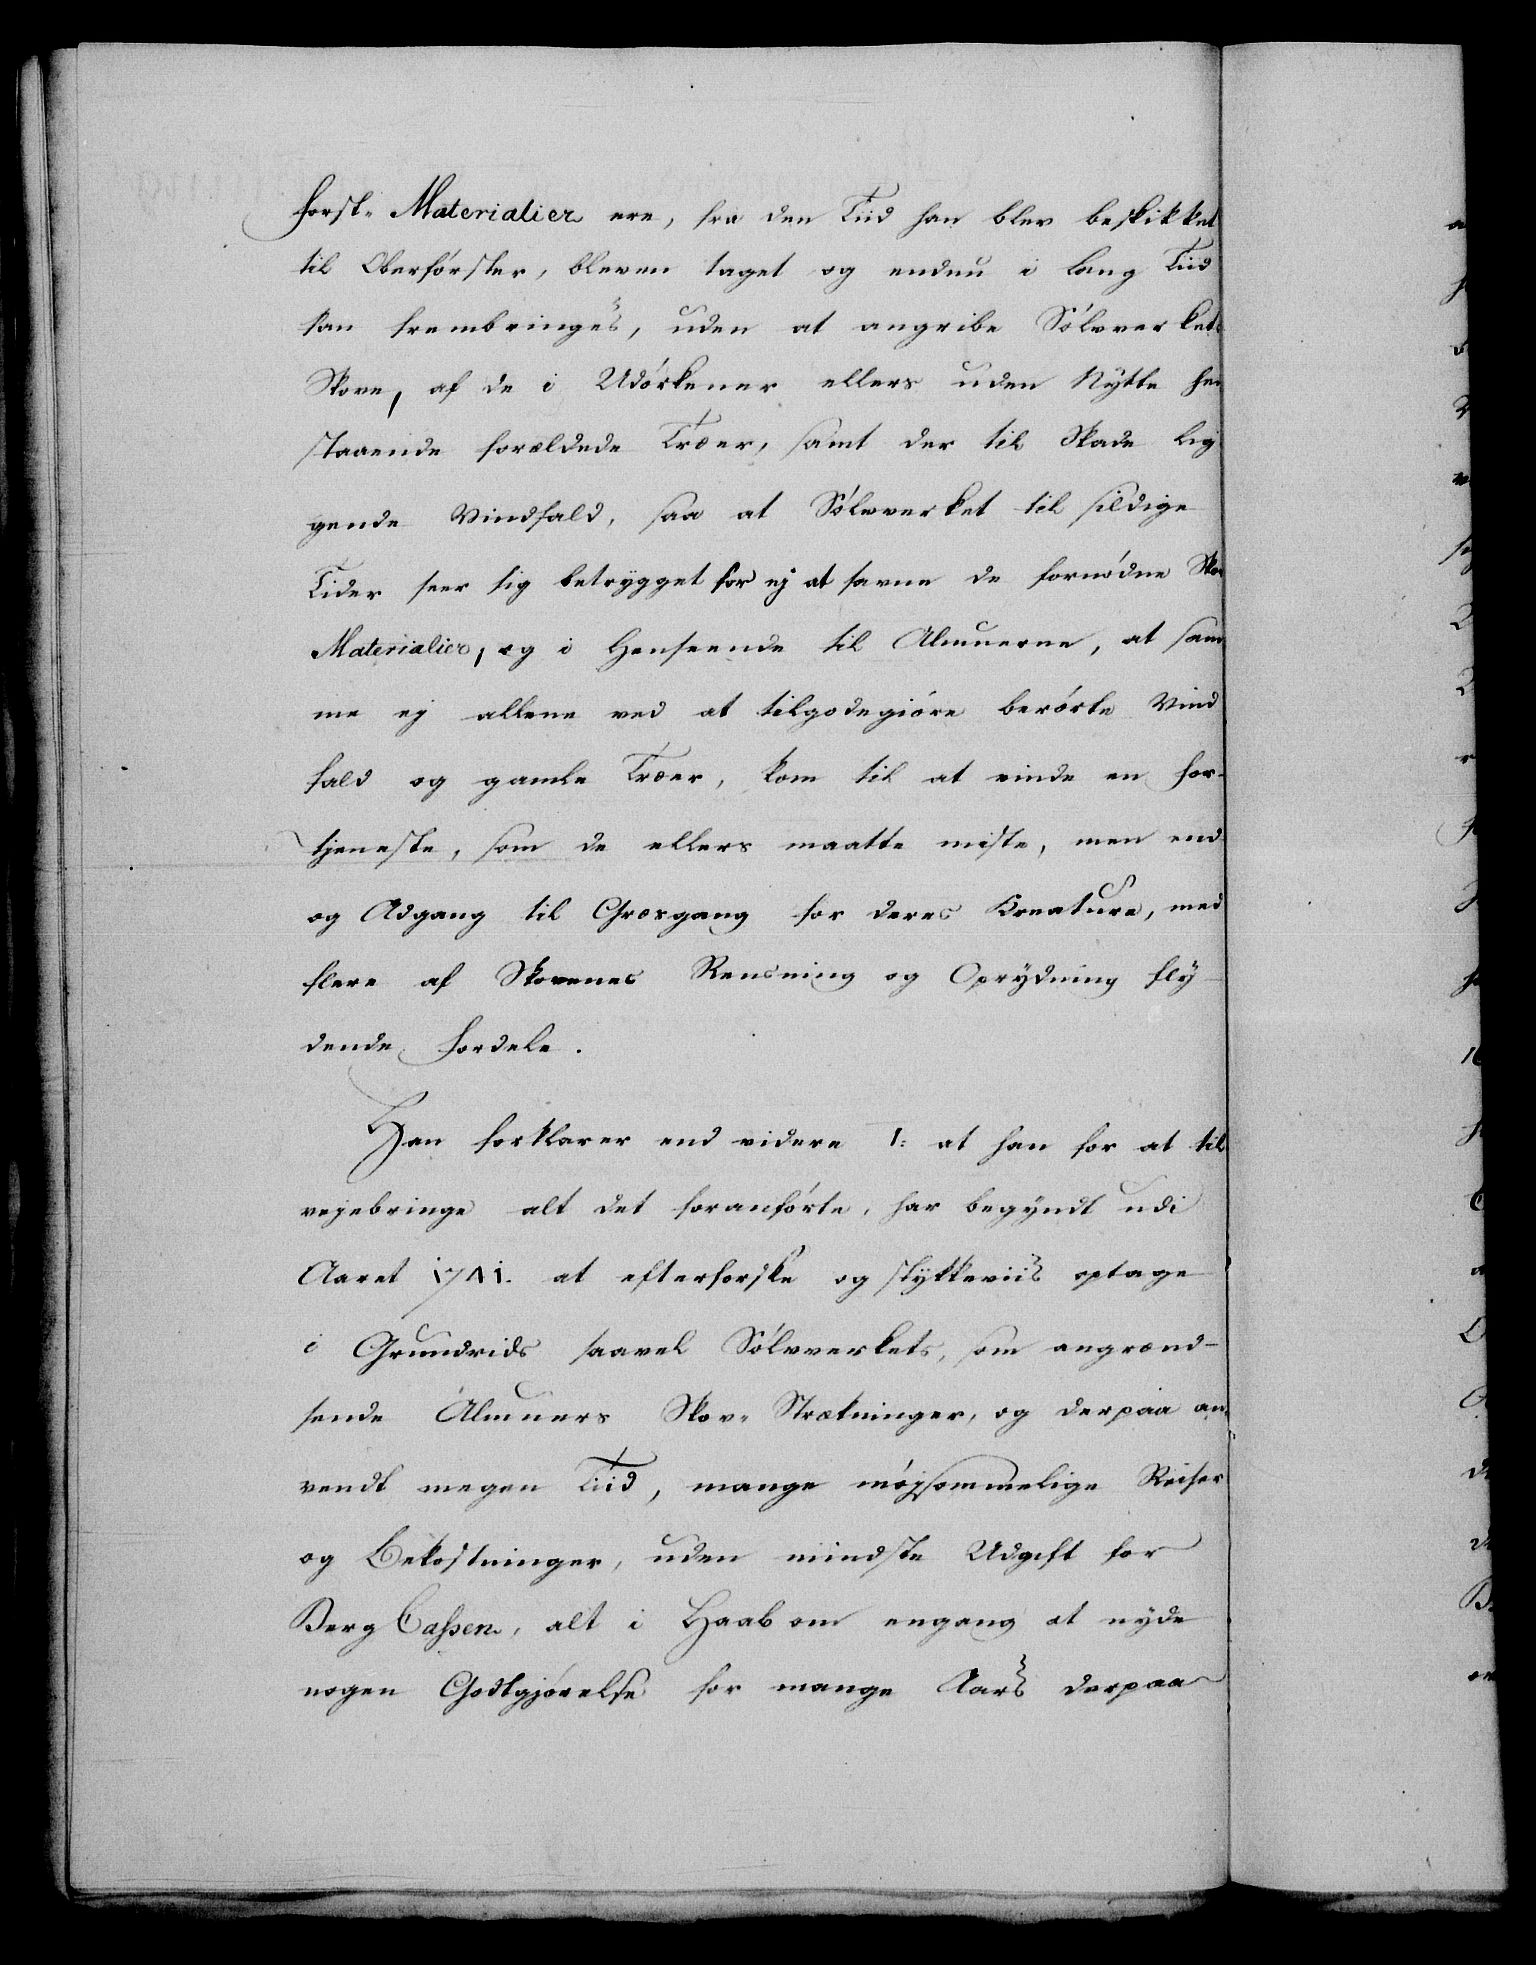 Forst- Materialier ere, fra den Tiid han blev beskikket
til Oberførster, bleven taget og endnu i lang Tiid
kan frembringes, uden at angribe Sølvverkets
Skove, af de i Udørkener ellers uden Nÿtte hen
staaende forældede Træer, samt der til Skade lig
gende Vindfald, saa at Sølvverket til sildige
Tider seer sig betrÿgget for ej at savne de fornødne Skov
Materialier, og i Henseende til Almuerne, at sam
me ej allene ved at tilgodegiøre berørte Vind
fald og gamle Træer, kom til at vinde en For-
tjeneste, som de ellers maatte miste, men end
og Adgang til Græsgang for deres Kreature, med
flere af Skovenes Rensning og Oprÿdning flÿ-
dende Fordele.
Han forklarer end videre 1: at han for at til
vejebringe alt det foranførte, har begyndt udi
Aaret 1781. at efterforske og stÿkkeviis optage
i Grundrids saavel Sølvverkets, som angrænd-
sende Almuers Skov- Strækninger, og derpaa an-
vendt megen Tiid, mange møjsommelige Reiser
og Bekostninger, uden mindste Udgift for
Berg Cassen, alt i Haab om engang at nyde
nogen Godtgjørelse for mange Aars derpaa